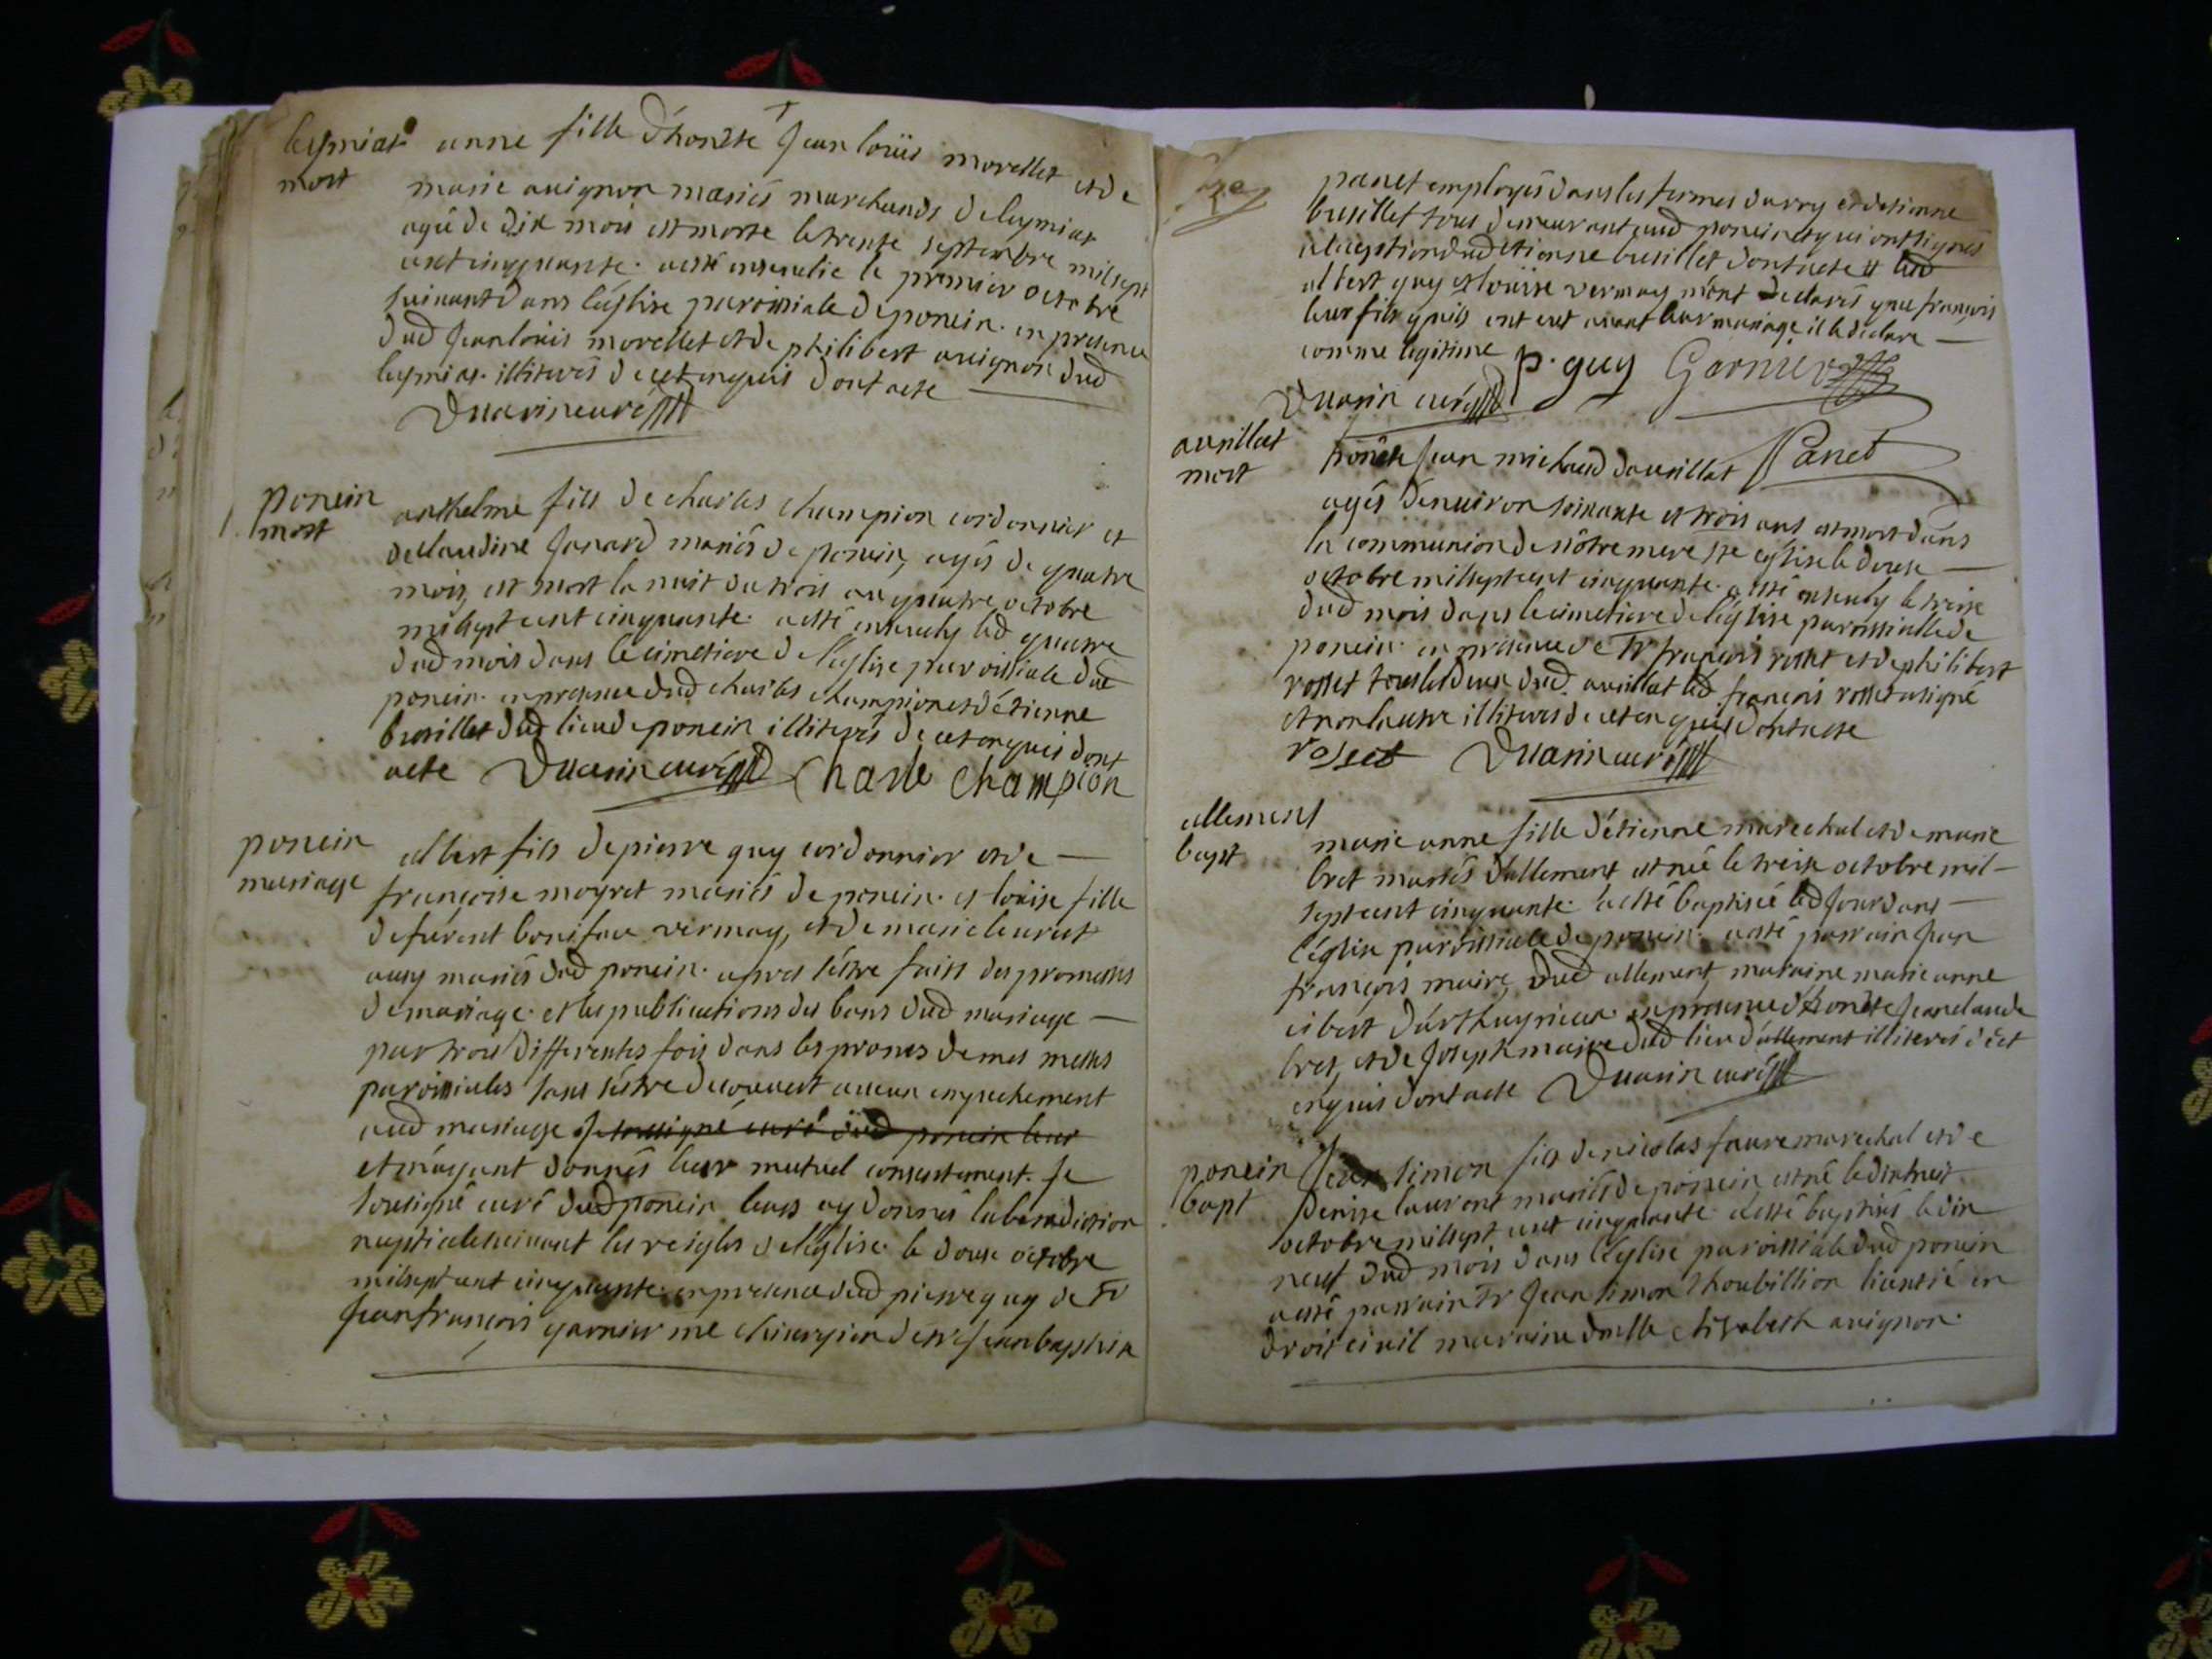 leymiat
mort
anne fille d'honête Jean loüis morellet et de
marie auignon mariés marchands de leymiat
agée de dix mois est morte le trente septembre mil sept
cent cinquante. a esté enseuelie le premier octobre
suiuant dans l'église paroissiale de poncin. en presence
dud Jean loüis morellet et de philibert auignon dud
leymiat. illiterés de ce enquis dont acte
Duarin curé
poncin
mort
anthelme fils de charles champion cordonnier et
de claudine Janard mariés de poncin, agés de quatre
mois, est mort la nuit du trois au quatre octobre
mil sept cent cinquante. a esté enseuely led quatre
dud mois dans le cimetiere de l'église paroissiale dud
poncin. en presence dud charles champion et d'étienne
brusillet dud lieu de poncin illiterés de ce enquis dont
acte Duarin curé Charle Champion
poncin
mariage
albert fils de pierre guy cordonnier et de
françoise moyret mariés de poncin. et loüise fille
de furent boniface vermay, et de marie
aussy mariés dud poncin. apres s'éstre faits des promesses
de mariage. et les publications des bans dud mariage
par trois differentes fois dans les prones de mes messes
paroissiales sans s'éstre decouuert aucun empechement
aud mariage Je soussigné curé dud poncin leur
et m'ayant donnés leur mutuel consentement. Je
sousigné curé dud poncin leurs ay donnés la benediction
nuptiale suiuant les reigles de l'église. le douze octobre
mil sept cent cinquante. en presence dud pierre guy de sr
Jean françois garnier me chirurgien de sr Jean baptiste
panet employés dans les fermes du roy et d'etienne
brusillet tous demeurant aud poncin et qui ont signés
a l'exception dud etienne brusillet dont acte et led
albert guy et loüise vermay m'ont declarés que françois
leur fils qu'ils ont eut auant leur mariage il le declare
comme legitime p. guy Garnier
Duarin curé
aurillat
mort
Panet
honête Jean michaud d'aurillat
agés d'enuiron soixante et trois ans est mort dans
la communion de nôtre mere ste église le douze
octobre mil sept cent cinquante. a esté enseuely le treize
dud mois dans le cimetiere de l'église paroissialle de
poncin. en presence de sr françois rosset et de philibert
rosset tous les deux dud. aurillat led. françois rosset a signé
et non l'autre illiterés de ce enquis dont acte
rosset Duarin curé
allement
bapt
marie anne fille d'étienne marechal et de marie
bret mariés d'allement est née le treize octobre mil
sept cent cinquante. a esté baptisée led Jour dans
l'église paroissiale de poncin. a esté parrain Jean
françois maire, dud allement, maraine marie anne
cibert en presence d'honéte Jean claude
bret, et de Joseph maire dud lieu d'allement illiterés d'cet
enquis dont acte Duarin curé
poncin
bapt
Jean simon fils de nicolas faure marechal et de
denise laurent mariés de poncin est né le dix huit
octobre mil sept cent cinquante. a esté baptisés le dix
neuf dud mois dans l'église paroissiale dud poncin
a esté parrain sr Jean simon thoubillion licentié en
droit ciuil maraine dmlle elizabeth auignon.